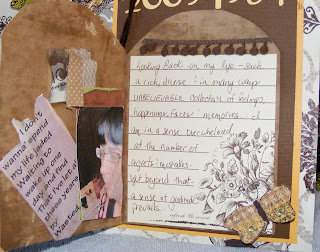 I don't
wanna spend
my life jaded
Waiting to
wake up one
day and find
That I've let all
these years
Wasted
Looking Back on my life - such
a rich, diverse & in many ways
UNBELIEVABLE Collection of feelings,
happenings, faces & memories. I
am in a sense overwhelmed
at the number of
mistakes
yet beyond that
a sense of gratitude
prevails